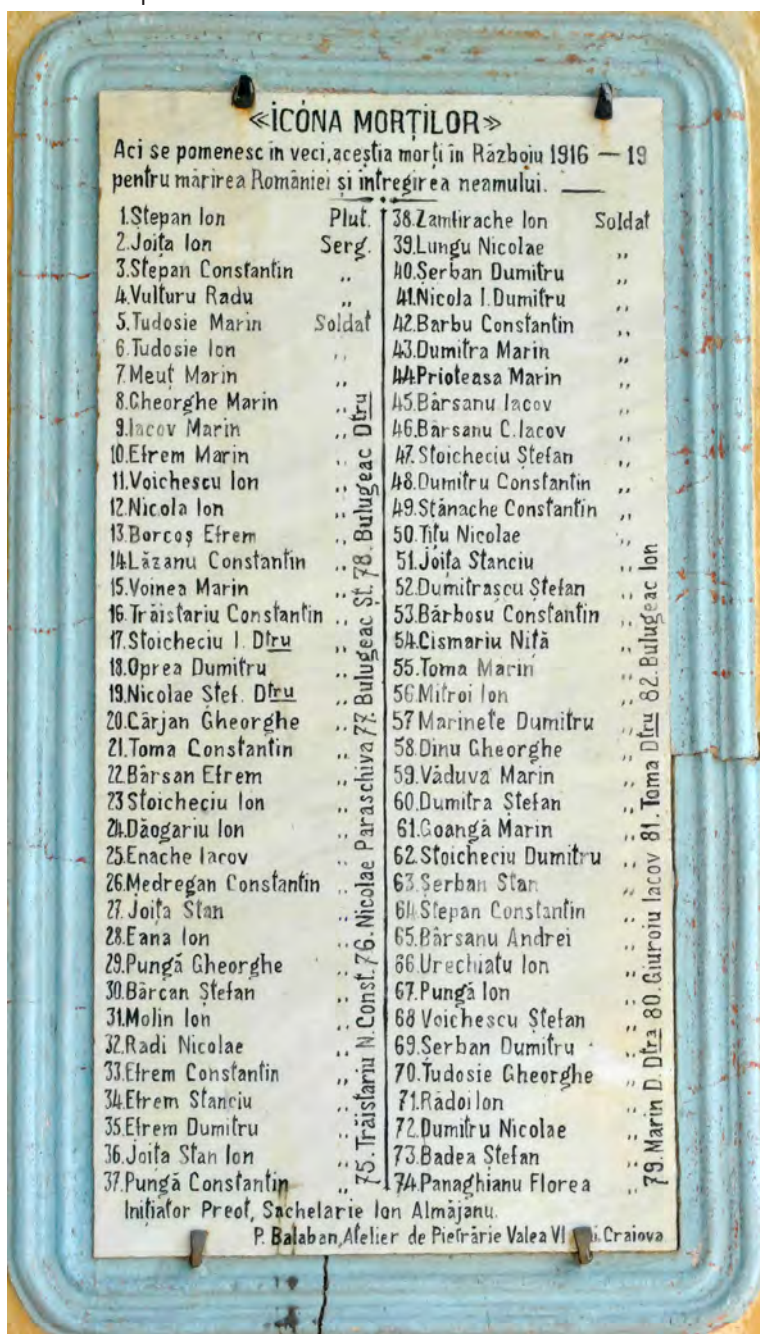 «ICÓNA MORȚILOR»
Aci se pomenesc în veci, aceștia morți în Războiu 1916 — 19
pentru mărirea României și întregirea neamului.
1. Ștepan Ion Plut.
2. Joița Ion Serg.
3. Stepan Constantin „
4. Vulturu Radu „
5. Tudosie Marin Soldat
6. Tudosie Ion „
7. Meuț Marin „
8. Gheorghe Marin „
9. Iacov Marin „
10. Efrem Marin „
11. Voichescu Ion „
12. Nicola Ion „
13. Borcoș Efrem „
14. Lăzanu Constantin „
15. Voinea Marin „
16. Trăistariu Constantin „
17. Stoicheciu I. Dtru „
18. Oprea Dumitru „
19. Nicolae Ștef. Dtru „
20. Cârjan Gheorghe „
21. Toma Constantin „
22. Bârsan Efrem „
23 Stoicheciu Ion „
24. Dăogariu Ion „
25. Enache Iacov „
26. Medregan Constantin „
27. Joița Stan „
28. Eana Ion „
29. Pungă Gheorghe „
30. Bărcan Ștefan „
31. Molin Ion „
32. Radi Nicolae „
33. Efrem Constantin „
34. Efrem Stanciu „
35. Efrem Dumitru „
36. Joița Stan Ion „
37. Pungă Constantin „
75. Trăistariu N. Const. 76. Nicolae Paraschiva 77. Bulugeac Șt. 78. Bulugeac Dtru
38. Zamfirache Ion Soldat
39. Lungu Nicolae „
40. Șerban Dumitru „
41. Nicola I. Dumitru „
42. Barbu Constantin „
43. Dumitra Marin „
44. Prioteasa Marin „
45. Bârsanu Iacov „
46. Bârsanu C. Iacov „
47. Stoicheciu Ștefan „
48. Dumitru Constantin „
49. Stănache Constantin „
50. Tițu Nicolae „
51. Joița Stanciu „
52. Dumitrașcu Ștefan „
53. Bărbosu Constantin „
54. Cismariu Niță „
55. Toma Marin „
56. Mitroi Ion „
57 Marinete Dumitru „
58. Dinu Gheorghe „
59. Văduva Marin „
60. Dumitra Ștefan „
61. Goangă Marin „
62. Stoicheciu Dumitru „
63. Șerban Stan „
64 Stepan Constantin „
65. Bârsanu Andrei „
66. Urechiatu Ion „
67. Pungă Ion „
68 Voichescu Ștefan „
69. Șerban Dumitru „
70. Tudosie Gheorghe „
71. Rădoi Ion „
72. Dumitru Nicolae „
73. Badea Ștefan „
74. Panaghianu Florea „
79. Marin D. Dtra 80. Giuroiu Iacov 81. Toma Dtru 82. Bulugeac Ion
Inițiator Preot, Sachelarie Ion Almăjanu.
P. Balaban, Atelier de Pietrărie Valea Craiova